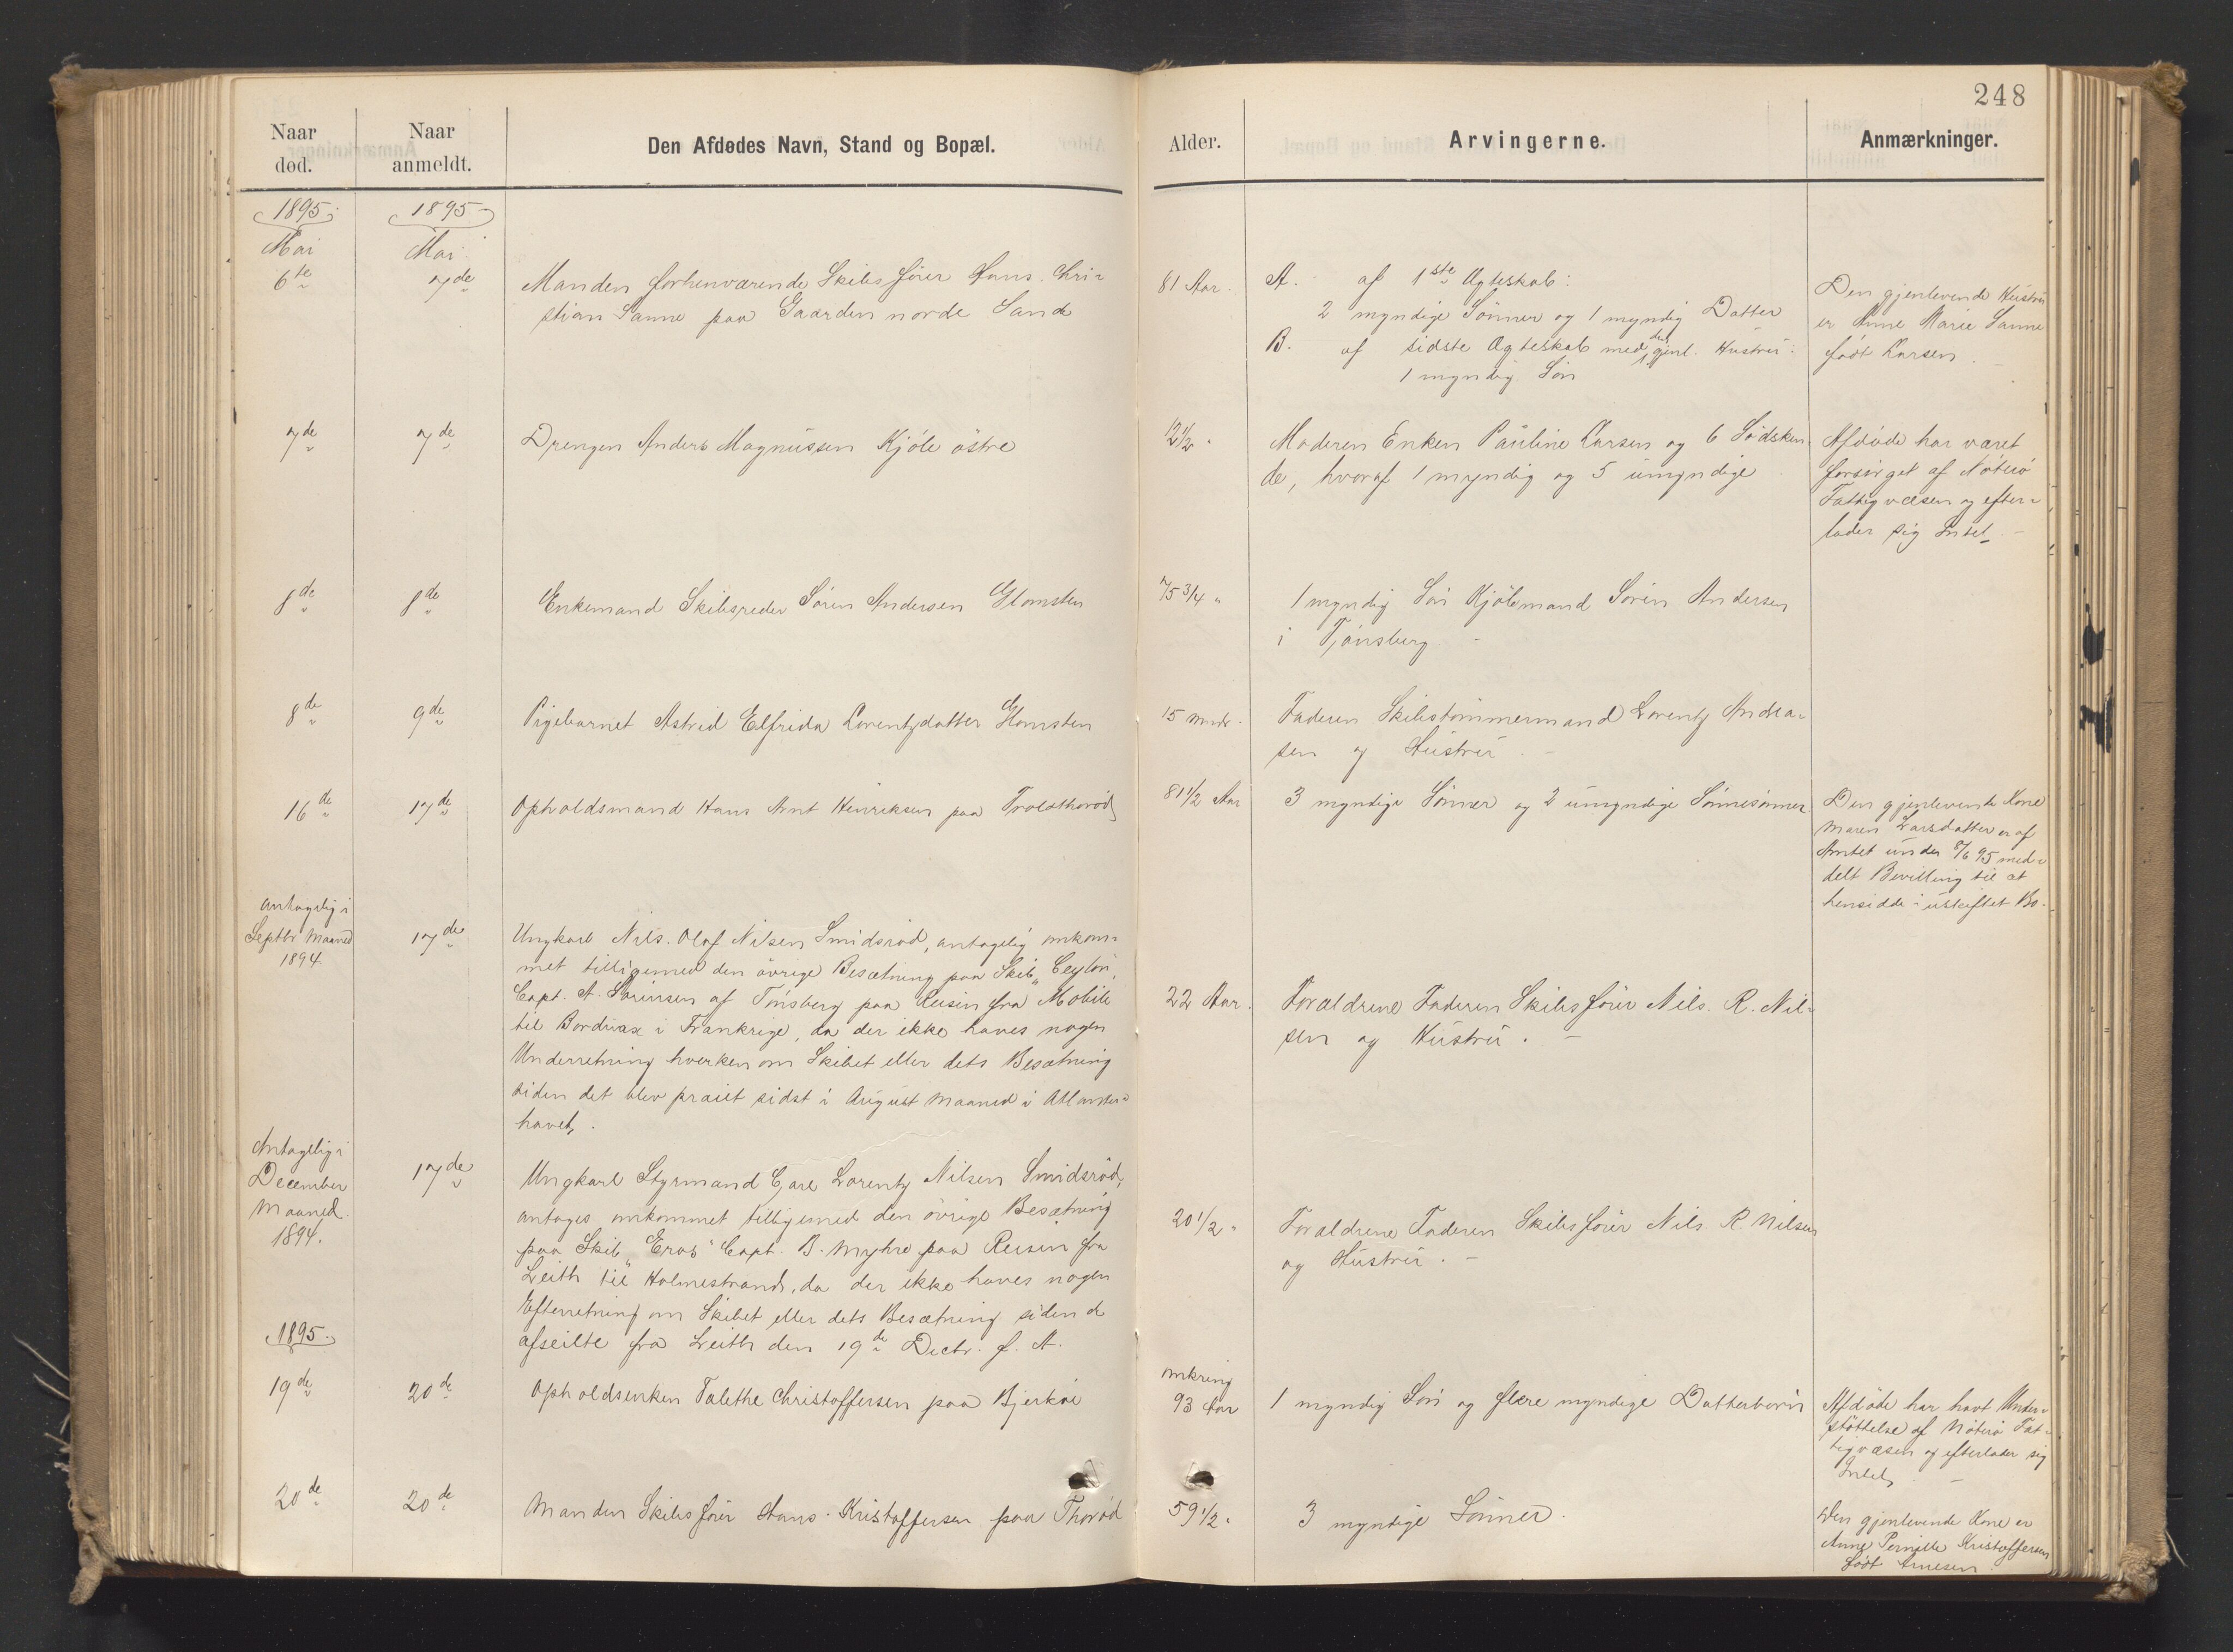 248
Naar
død.
Naar
anmeldt.
Den Afdødes Navn, Stand og Bopæl.
Alder.
Arvingerne.
Anmærkninger.
1895
1895
Mai
Mai
6te
7de
Manden forhenværende Skibsfører Hans Chri-
stian Sanne paa Gaarden nordre Sande
81 Aar.
A. af 1ste Ægteskab:
2 myndige Sønner og 1 myndig Datter
B. af sidste Ægteskab med den gjenl. Hustru:
1 myndig Søn
Den gjenlevende Hustru
er Anne Marie Sanne
født Larsen
7de
7de
Drengen Anders Magnussen Kjøle østre
12 1/2 "
Moderen Enken Pauline Larsen og 6 Sødsken-
de, hvoraf 1 myndig og 5 umyndige
Afdøde har været
forsørget af Nøterø
Fattigvæsen og efter-
lader sig Intet. -
8de
8de
Enkemand Skibsreder Søren Andersen Glomsten
75 3/4 "
1 myndig Søn Kjøbmand Søren Andersen
i Tønsberg. -
8de
9de
Pigebarnet Astrid Elfrida Lorentzdatter Glomsten
15 Mndr.
Faderen Skibstømmermand Lorentz Andrea-
sen og Hustru. -
16de
17de
Opholdsmand Hans Arnt Henriksen paa
81 1/2 Aar
3 myndige Sønner og 2 umyndige Sønnesønner
Den gjenlevende Kone
Maren Larsdatter er af
Amtet under 8/6 95 med-
delt Bevilling til at
hensidde i uskiftet Bo.
antagelig i
Septbr Maaned
1894
17de
Ungkarl Nils Olaf Nilsen Smidsrød, antagelig omkom-
met tilligemed den øvrige Besætning paa Skib "Ceylon",
Capt. A. Sørensen af Tønsberg paa Reisen fra Mobile
til Borduax i Frankrige, da der ikke haves nogen
Underretning hverken om Skibet eller dets Besætning
siden det blev praiet sidst i August Maaned i Atlanter-
havet.
22 Aar.
Forældrene Faderen Skibsfører Nils R. Nil-
sen og Hustru. -
Antagelig i
December
Maaned
1894.
17de
Ungkarl Styrmand Carl Lorentz Nilsen Smidsrød,
antages omkommet tilligemed den øvrige Besætning
paa Skib "Eros" Capt. B. Myhre paa Reisen fra
Leith til Holmestrand, da der ikke haves nogen
Efterretning om Skibet eller dets Besætning siden de
afseilte fra Leith den 19de Decbr. f. A.
20 1/2 "
Forældrene Faderen Skibsfører Nils R. Nilsen
og Hustru. -
1895.
19de
20de
Opholdsenken Talethe Christoffersen paa Bjerkøe
omkring
93 Aar
1 myndig Søn og flere myndige Datterbørn
Afdøde har havt Under-
støttelse af Nøterø Fat-
tigvæsen og efterlader sig
Intet. -
20de
20de
Manden Skibsfører Hans Kristoffersen paa Thorød
59 1/2 "
3 myndige Sønner.
Den gjenlevende Kone er
Anne Pernille Kristoffersen
født